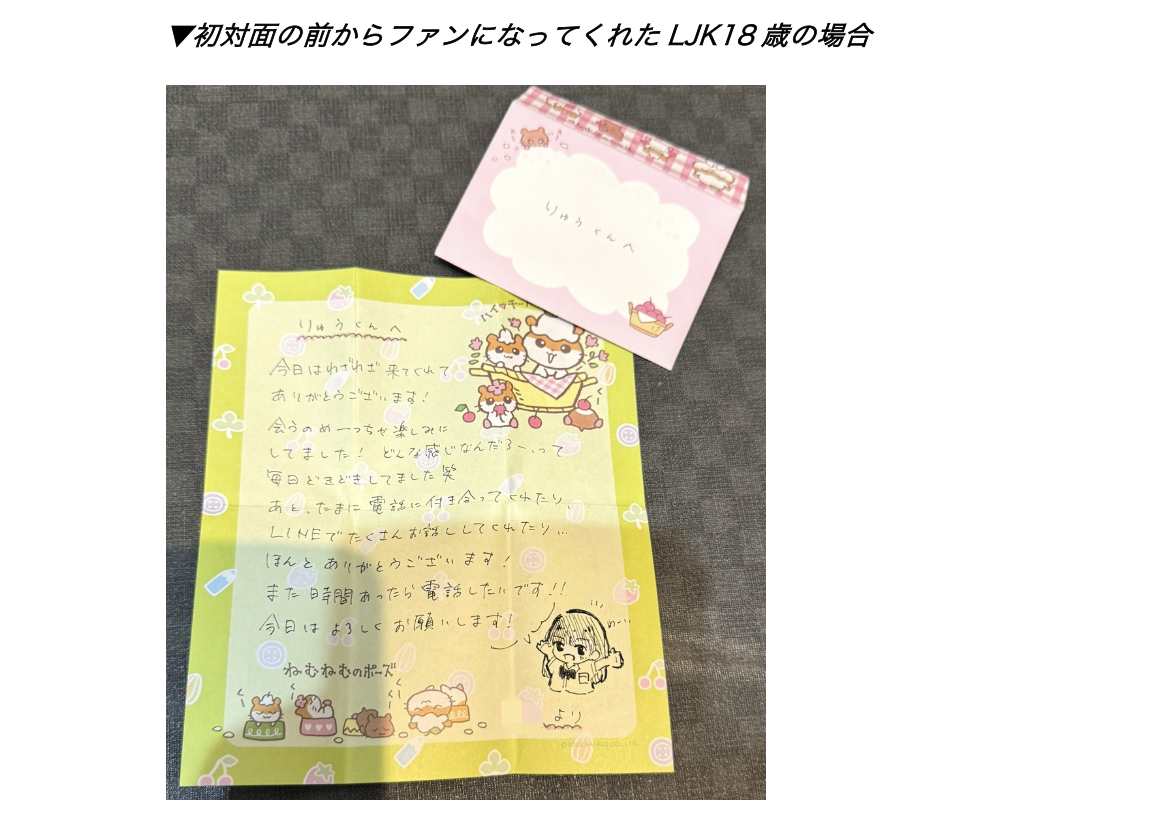 ▼初対面の前からファンになってくれたLJK18歳の場合
りゅうくんへ
ハイッチー
りゅうくんへ
今日はわざわざ来てくれて
ありがとうございます!
会うのめーっちゃ楽しみに
してました! どんな感じなんだろー、って
毎日どきどきしてました笑
あと、たまに電話に付き合ってくれたり、
LINEでたくさんお話ししてくれたり…
ほんとありがとうございます!
また時間あったら電話したいです!!
今日はよろしくお願いします!
ねむねむのポーズ
より